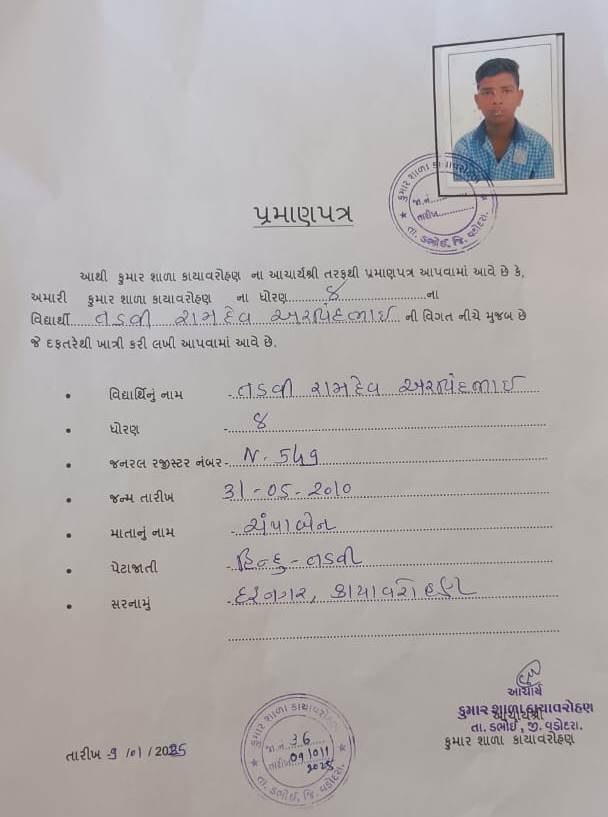 કુમાર શાળા કાયાવરોહણ
જા.નં.
તારીખ
તા. ડભોઈ, જિ. વડોદરા.
પ્રમાણપત્ર
આથી કુમાર શાળા કાયાવરોહણ ના આચાર્યશ્રી તરફથી પ્રમાણપત્ર આપવામાં આવે છે કે,
અમારી કુમાર શાળા કાયાવરોહણ ના ધોરણ 8 ના
વિદ્યાર્થી તડવી રામદેવ અરવિંદભાઈ ની વિગત નીચે મુજબ છે
જે દફતરેથી ખાત્રી કરી લખી આપવામાં આવે છે.
• વિદ્યાર્થિનું નામ - તડવી રામદેવ અરવિંદભાઈ
• ધોરણ - 8
• જનરલ રજીસ્ટર નંબર - N. 549
• જન્મ તારીખ 31-05-2010
• માતાનું નામ - ચંપાબેન
• પેટાજાતી - હિન્દુ - તડવી
• સરનામું - , કાયાવરોહણ
આચાર્ય
કુમાર શાળા કાયાવરોહણ
આચાર્યશ્રી
તા. ડભોઈ, જી. વડોદરા.
કુમાર શાળા કાયાવરોહણ
તારીખ 9/01/2025
કુમાર શાળા કાયાવરોહણ
જા.નં. 36
તારીખ 09/01/
2025
તા. ડભોઈ, જિ. વડોદરા.